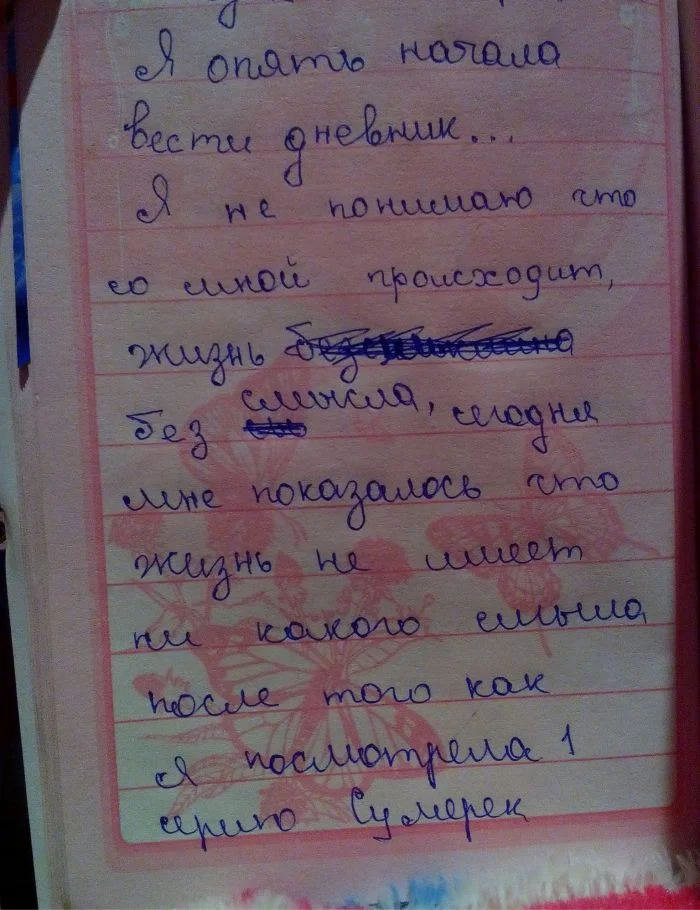 Я опять начала
вести дневник...
Я не понимаю что
со мной происходит,
жизнь
без смысла, сегодня
мне показалось что
жизнь не имеет
ни какого смысла
после того как
я посмотрела 1
серию Сумерек